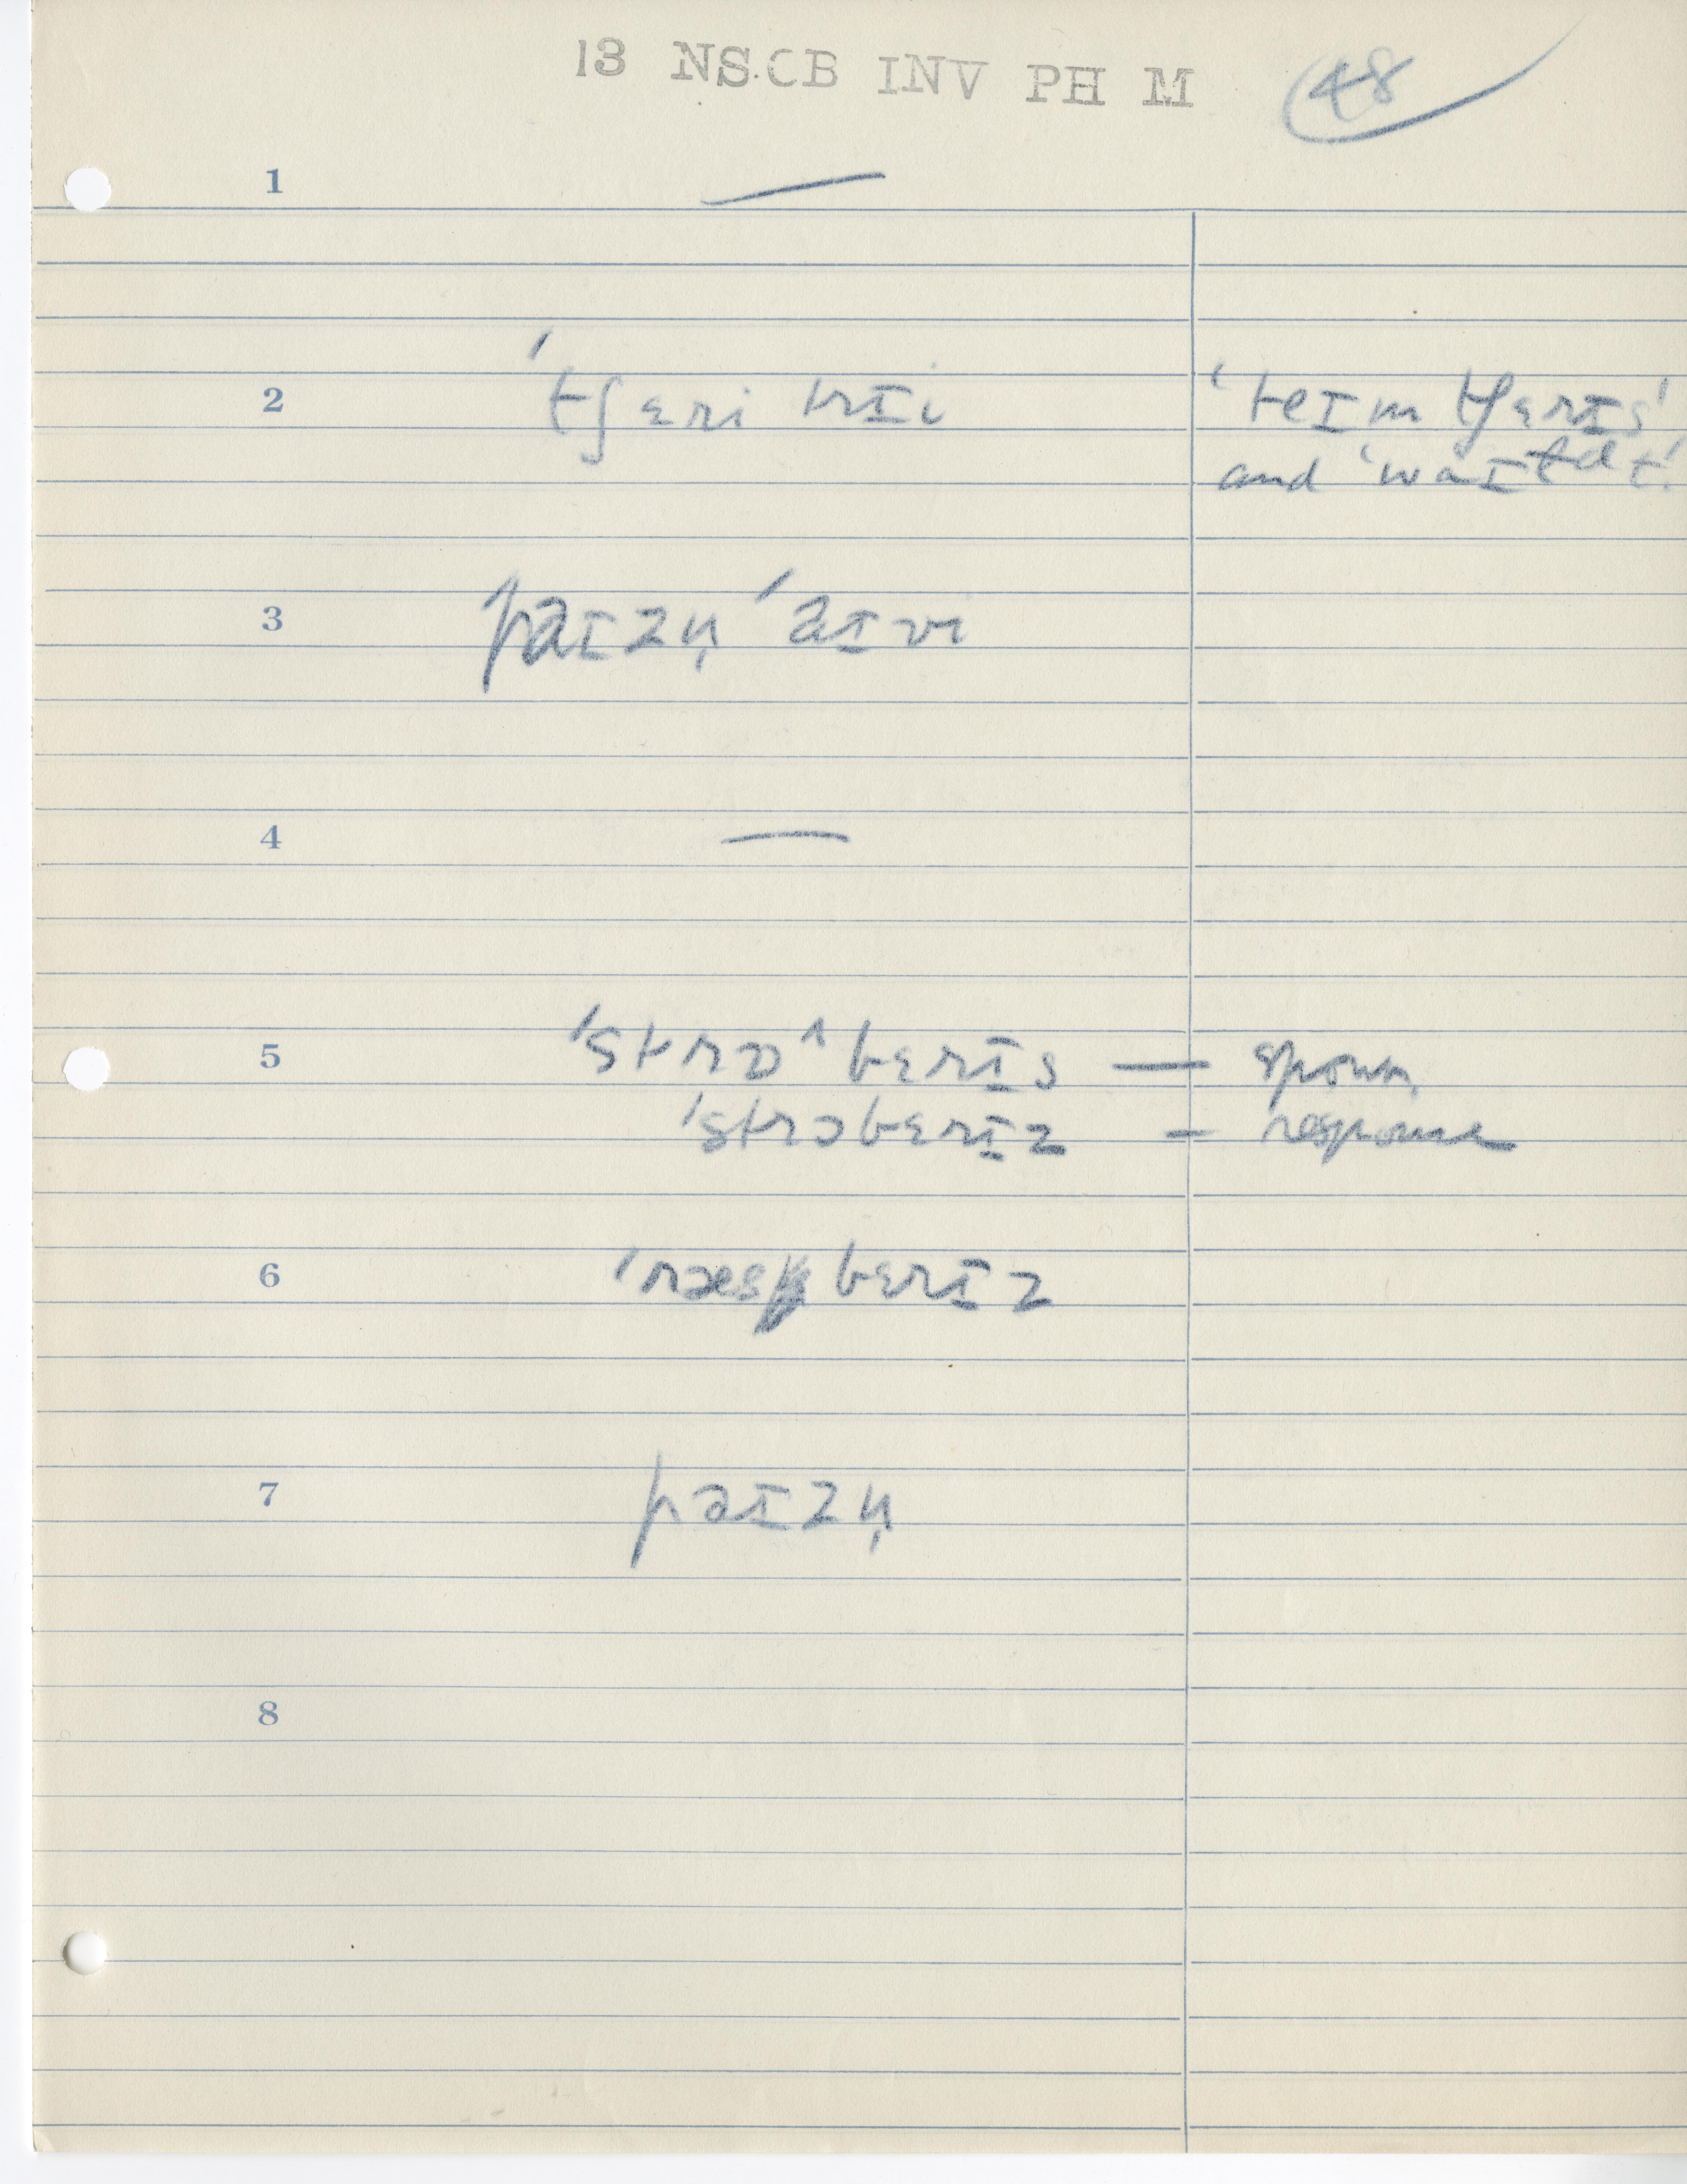 13 NSCB INV PH M 48
1 —
2 ˈtʃɛri trɪi ˈteɪm tʃɛrɪs'
and 'waɪld t.'
3 paɪzn̩ ˈaɪvi
4 —
5 ˈstrɔ^bɛrɪs — spon.
ˈstrɔbɛrɪz — response
6 ˈræsbɛrɪz
7 paɪzn̩
8